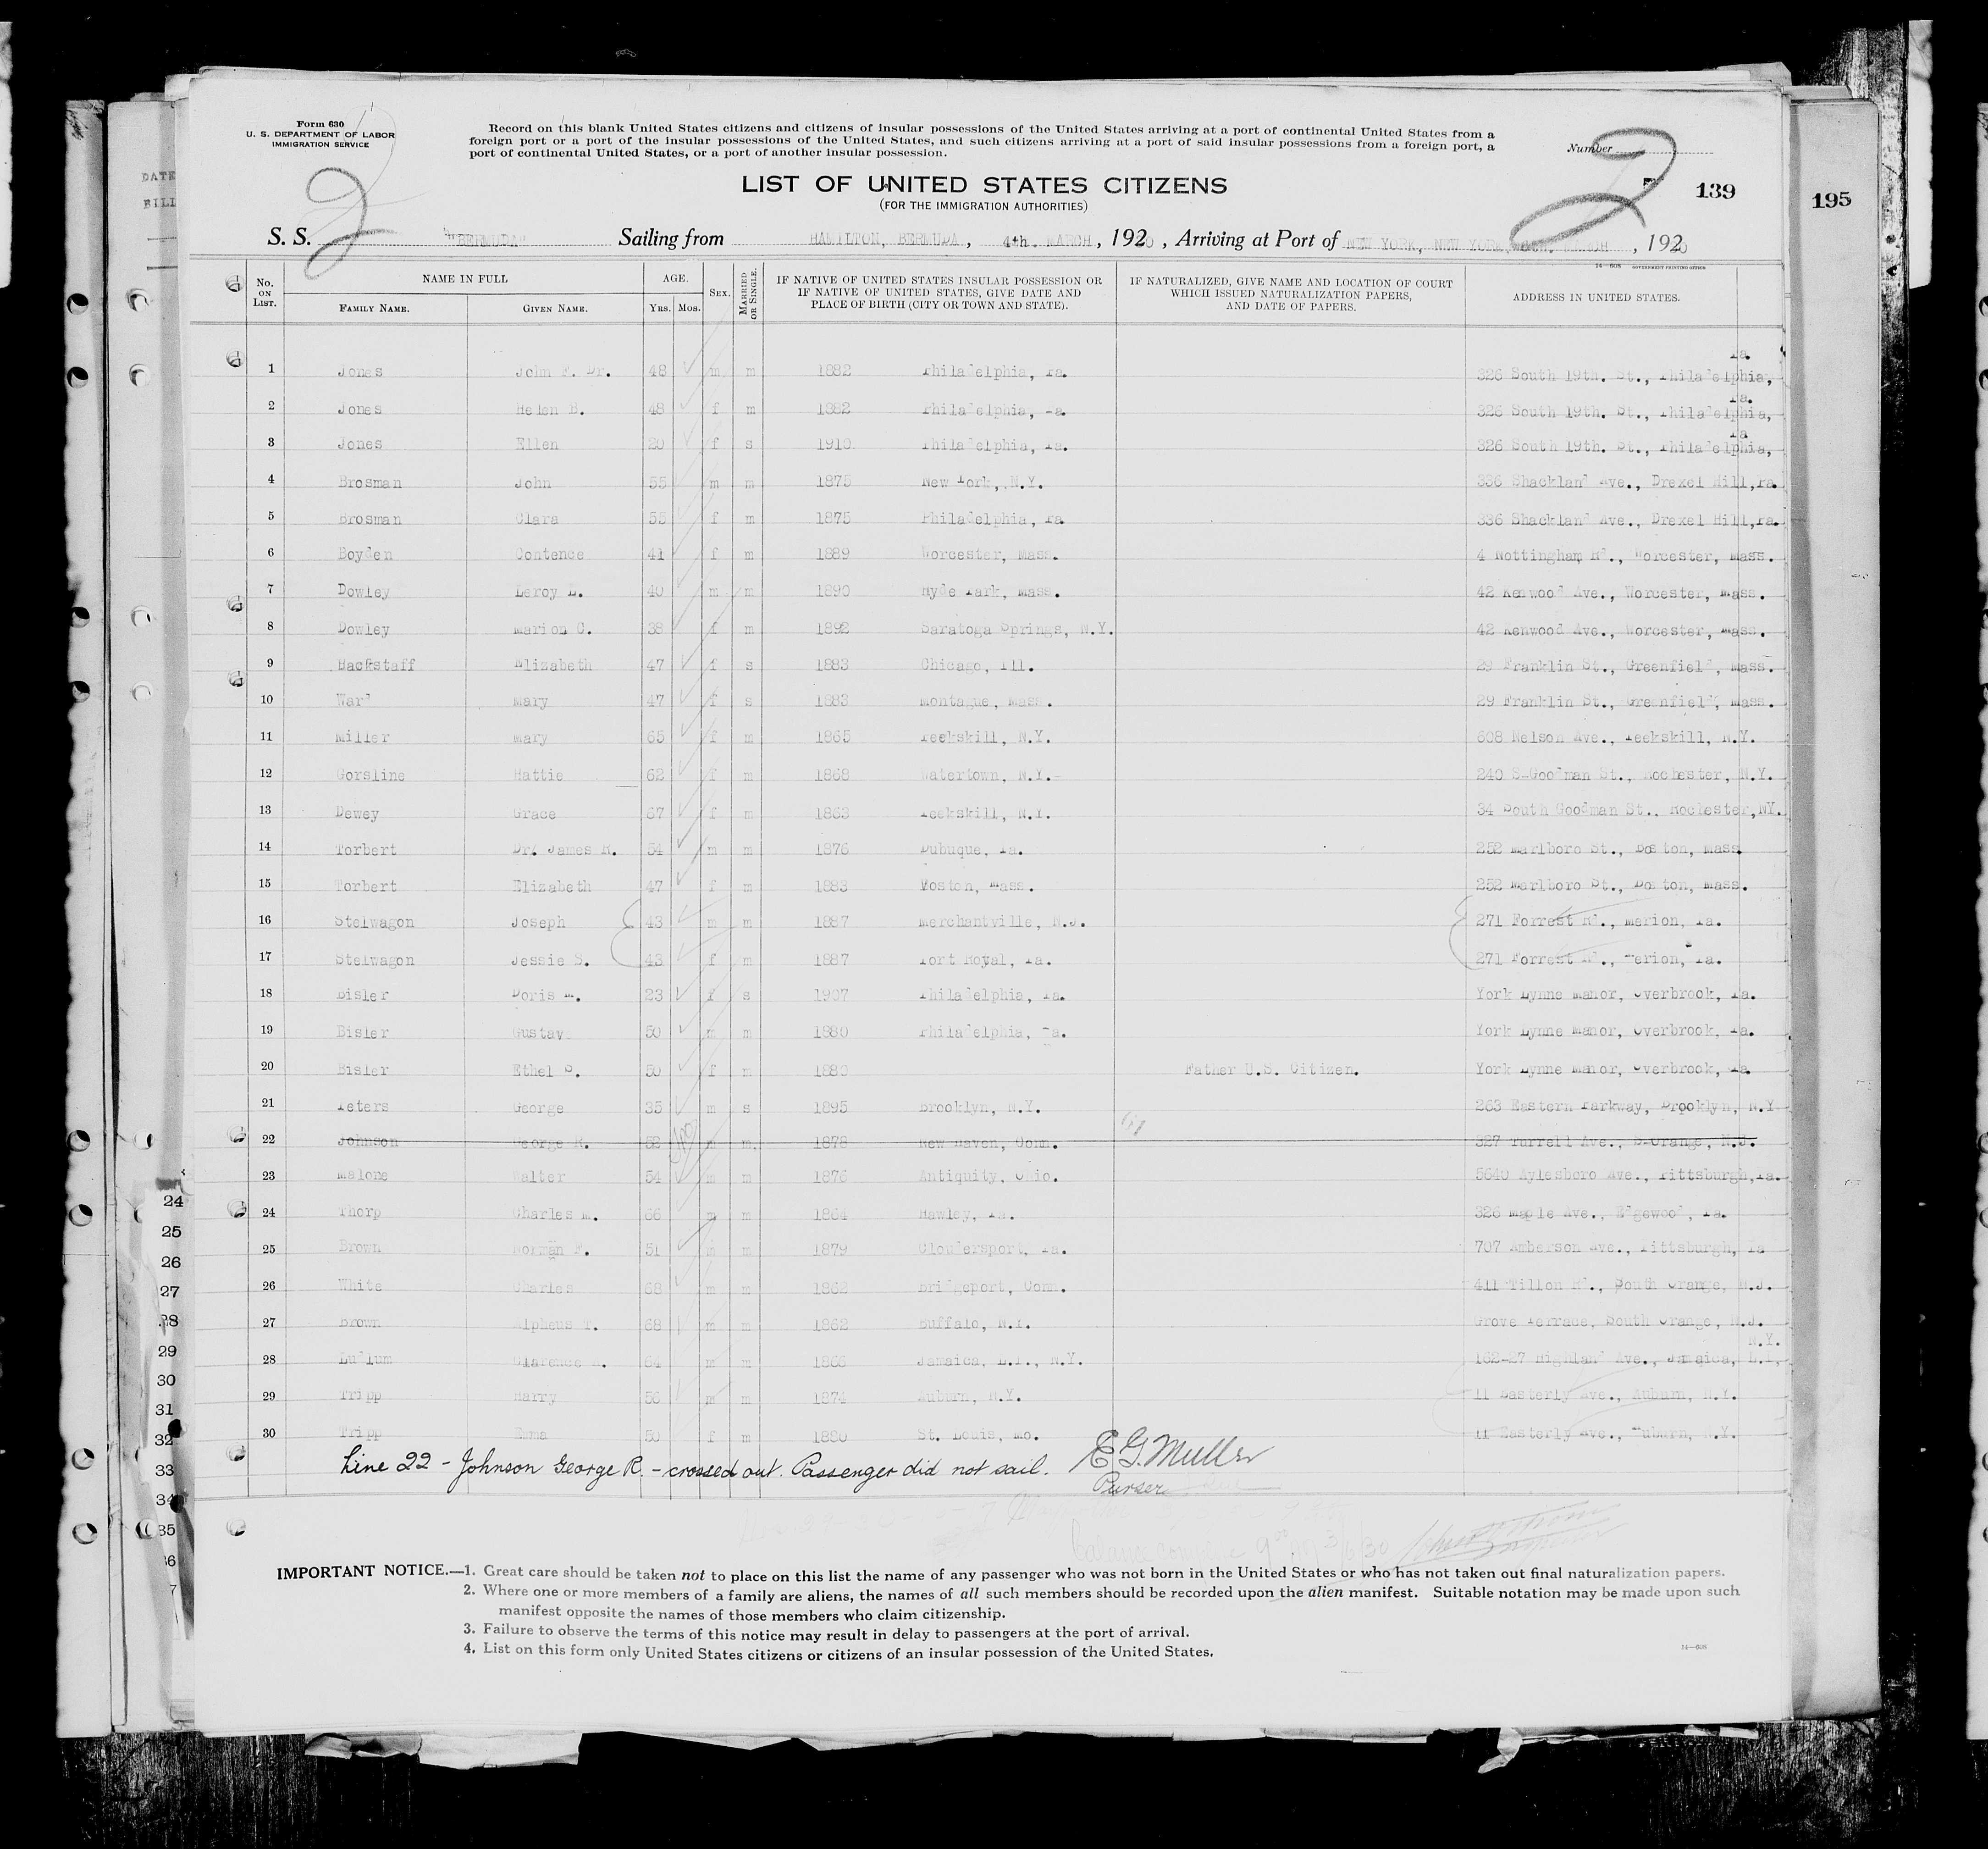 Form 630
U. S. DEPARTMENT OF LABOR
IMMIGRATION SERVICE
Record on this blank United States citizens and citizens of insular possessions of the United States arriving at a port of continental United States from a
foreign port or a port of the insular possessions of the United States, and such citizens arriving at a port of said insular possessions from a foreign port, a
port of continental United States, or a port of another insular possession.
Number
2 2
139
195
LIST OF UNITED STATES CITIZENS
(FOR THE IMMIGRATION AUTHORITIES)
S. S. "BERMUDA" Sailing from HAMILTON, BERMUDA, 4th. MARCH, 1920, Arriving at Port of NEW YORK, NEW YORK, MARCH, 1920
14—608 GOVERNMENT PRINTING OFFICE
No. ON LIST. NAME IN FULL FAMILY NAME. GIVEN NAME. AGE. YRS. MOS. SEX. MARRIED OR SINGLE. IF NATIVE OF UNITED STATES INSULAR POSSESSION OR IF NATIVE OF UNITED STATES, GIVE DATE AND PLACE OF BIRTH (CITY OR TOWN AND STATE). IF NATURALIZED, GIVE NAME AND LOCATION OF COURT WHICH ISSUED NATURALIZATION PAPERS, AND DATE OF PAPERS. ADDRESS IN UNITED STATES.
1 Jones John F. Dr. 48 m m 1882 Philadelphia, Pa. 326 South 19th. St., Philadelphia, Pa.
2 Jones Helen B. 48 f m 1882 Philadelphia, Pa. 326 South 19th. St., Philadelphia, Pa.
3 Jones Ellen 20 f s 1910 Philadelphia, Pa. 326 South 19th. St., Philadelphia, Pa
4 Brosman John 55 m m 1875 New York, N.Y. 336 Shackland Ave., Drexel Hill, Pa.
5 Brosman Clara 55 f m 1875 Philadelphia, Pa 336 Shackland Ave., Drexel Hill, Pa.
6 Boyden Contence 41 f m 1889 Worcester, Mass. 4 Nottingham Rd., Worcester, Mass.
7 Dowley Leroy D. 40 m m 1890 Hyde Park, Mass. 42 Kenwood Ave., Worcester, Mass.
8 Dowley Marion C. 38 f m 1892 Saratoga Springs, N.Y. 42 Kenwood Ave., Worcester, Mass.
9 Hackstaff Elizabeth 47 f s 1883 Chicago, Ill. 29 Franklin St., Greenfield, Mass.
10 Ward Mary 47 f s 1883 Montague, Mass. 29 Franklin St., Greenfield, Mass.
11 Miller Mary 65 f m 1865 Peekskill, N.Y. 608 Nelson Ave., Peekskill, N.Y.
12 Gorsline Hattie 62 f m 1868 Watertown, N.Y. 240 S-Goodman St., Rochester, N.Y.
13 Dewey Grace 67 f m 1863 Peekskill, N.Y. 34 South Goodman St., Rochester, NY.
14 Torbert Dr. James R. 54 m m 1876 Dubuque, Ia. 252 Marlboro St., Boston, Mass
15 Torbert Elizabeth 47 f m 1883 Boston, Mass. 252 Marlboro St., Boston, Mass.
16 Stelwagon Joseph 43 m m 1887 Merchantville, N.J. 271 Forrest Rd., Merion, Pa.
17 Stelwagon Jessie S. 43 f m 1887 Port Royal, Pa. 271 Forrest Rd., Merion, Pa.
18 Bisler Doris M. 23 f s 1907 Philadelphia, Pa. York Lynne Manor, Overbrook, Pa.
19 Bisler Gustav 50 m m 1880 Philadelphia, Pa. York Lynne Manor, Overbrook, Pa.
20 Bisler Ethel S. 50 f m 1880 Father U.S. Citizen. York Lynne Manor, Overbrook, Pa.
21 Peters George 35 m s 1895 Brooklyn, N.Y. 263 Eastern Parkway, Brooklyn, N.Y
22 Johnson George R. 52 m m 1878 New Haven, Conn. 327 Turrell Ave., S-Orange, N.J.
23 Malone Walter 54 m m 1876 Antiquity, Ohio. 5640 Aylesboro Ave., Pittsburgh, Pa.
24 Thorp Charles M. 66 m m 1864 Hawley, Pa. 326 Maple Ave., Edgewood, Pa.
25 Brown Norman F. 51 m m 1879 Cloudersport, Pa. 707 Amberson Ave., Pittsburgh, Pa
26 White Charles 68 m m 1862 Bridgeport, Conn. 411 Tillon Rd., South Orange, N.J.
27 Brown Alpheus T. 68 m m 1862 Buffalo, N.Y. Grove Terrace, South Orange, N.J.
28 Ludlum Clarence A. 64 m m 1866 Jamaica, L.I., N.Y. 162-27 Highland Ave., Jamaica, L.I, N.Y.
29 Tripp Harry 56 m m 1874 Auburn, N.Y. 11 Easterly Ave., Auburn, N.Y.
30 Tripp Emma 50 f m 1880 St. Louis, Mo. 11 Easterly Ave., Auburn, N.Y.
Line 22 - Johnson George R. - crossed out. Passenger did not sail. E G. Muller
Purser
IMPORTANT NOTICE.—1. Great care should be taken not to place on this list the name of any passenger who was not born in the United States or who has not taken out final naturalization papers.
2. Where one or more members of a family are aliens, the names of all such members should be recorded upon the alien manifest. Suitable notation may be made upon such
manifest opposite the names of those members who claim citizenship.
3. Failure to observe the terms of this notice may result in delay to passengers at the port of arrival.
4. List on this form only United States citizens or citizens of an insular possession of the United States.
14—608
DATE
BILL
24
25
26
27
28
29
30
31
32
33
34
35
36